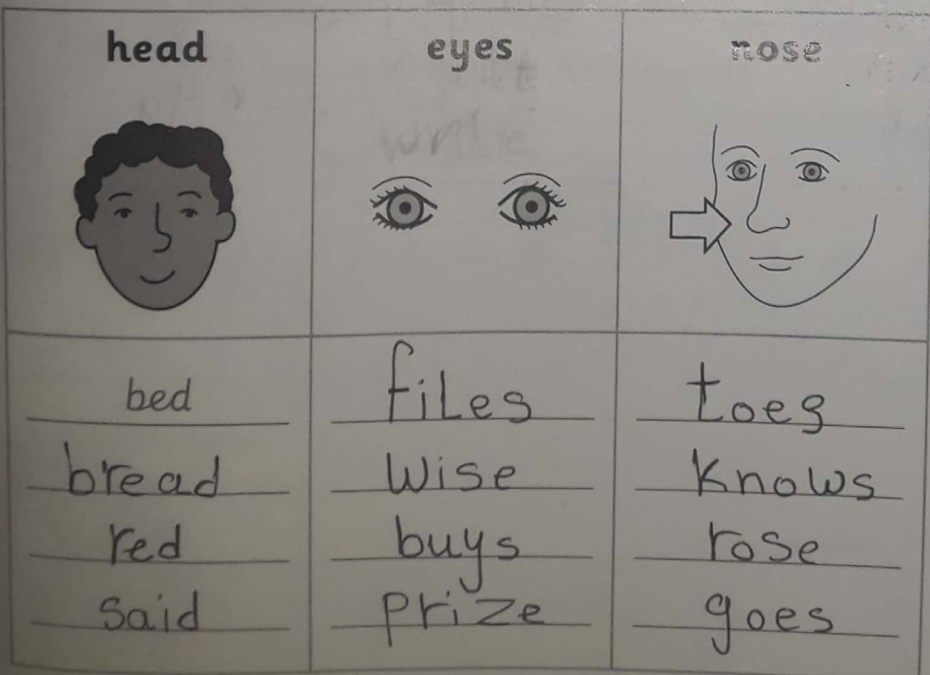 head eyes nose
bed files toes
bread wise knows
red buys rose
said prize goes